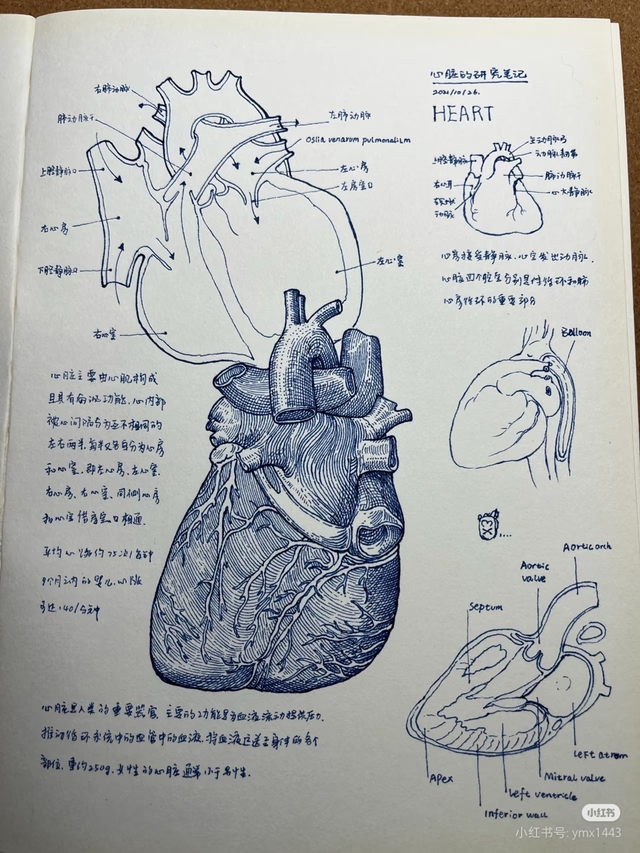 心脏的研究笔记
2021/10/26.
HEART
右肺动脉
肺动脉干
上腔静脉口
右心房
下腔静脉口
右心室
左肺动脉
Ostia venarum pulmonalium
左心房
左房室口
左心室
主动脉弓
上腔静脉
动脉韧带
肺动脉干
右心耳
心大静脉
动脉
心房接受静脉,心室发出动脉.
心脏四个腔室分别是体循环和肺
心房循环的重要部分
Balloon
心脏主要由心肌构成
且具有 功能.心内部
被心间隔分为互不相同的
左右两半,每半又各自分为心房
和心室,即左心房、左心室.
右心房、右心室,同侧心房
和心室借房室口相通.
平均心跳约75次1分钟
9个月以内的婴儿,心跳
可达140/分钟
Aortic arch
Aortic
valve
Septum
Left atrium
Mitral valve
Left ventricle
Apex
Inferior wall
心脏是人类的重要器官,主要的功能是为血液流动提供压力.
推动循环系统中的血管中的血液.将血液运送至身体的各个
部位,重约250g,女性的心脏通常小于男性.
小红书
小红书号: ymx1443